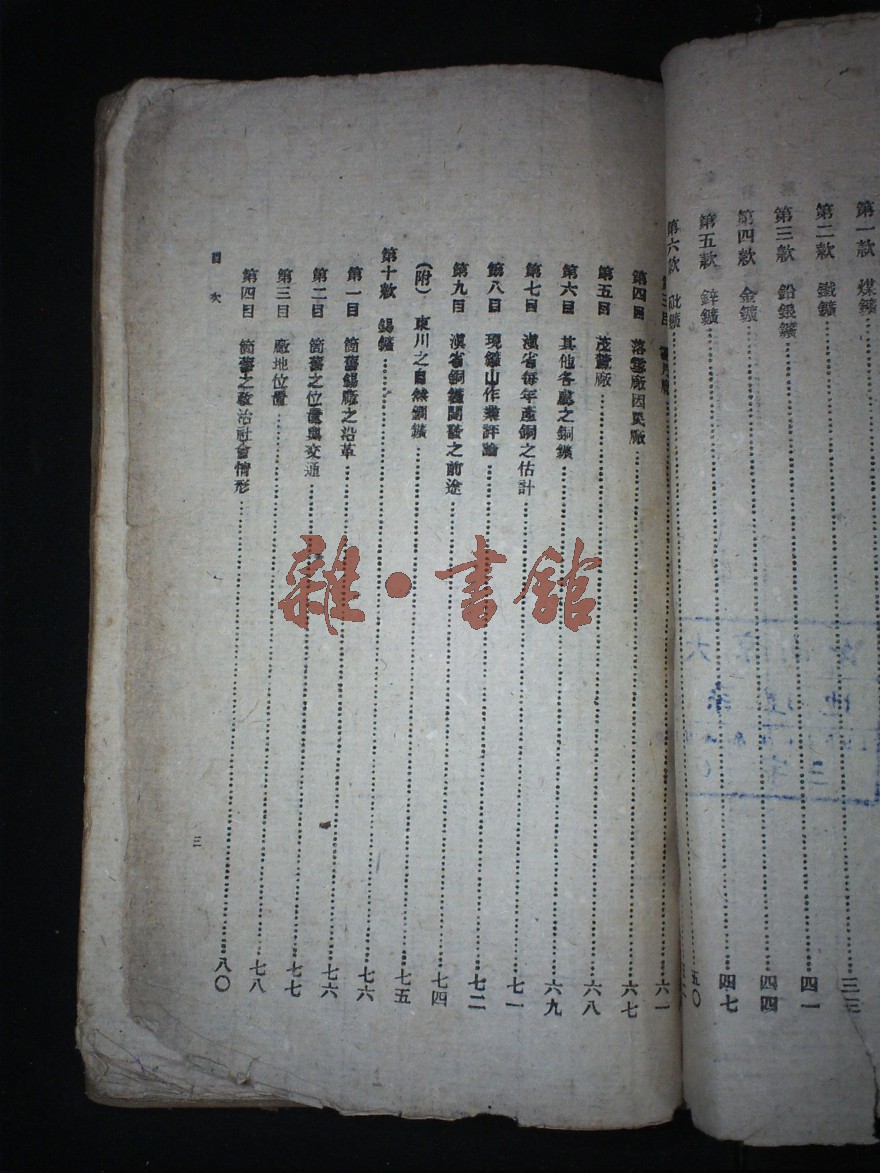 第一款 煤鑛………三三
第二款 鐵鑛………四一
第三款 鉛銀鑛………四四
第四款 金鑛………四七
第五款 鋅鑛………五〇
第六款 砒鑛………
第三目………六一
第四目 落雪廠因民廠………六七
第五目 茂麓廠………六八
第六目 其他各廠之銅鑛………六九
第七目 滇省每年產銅之估計………七一
第八目 現鑛山作業評論………七二
第九目 滇省銅鑛開發之前途………七四
(附) 東川之自然銅鑛………七五
第十款 錫鑛………七六
第一目 箇舊錫廠之沿革………七六
第二目 箇舊之位置與交通………七七
第三目 廠地位置………七八
第四目 箇舊之政治社會情形………八〇
目次
三
雜·書館